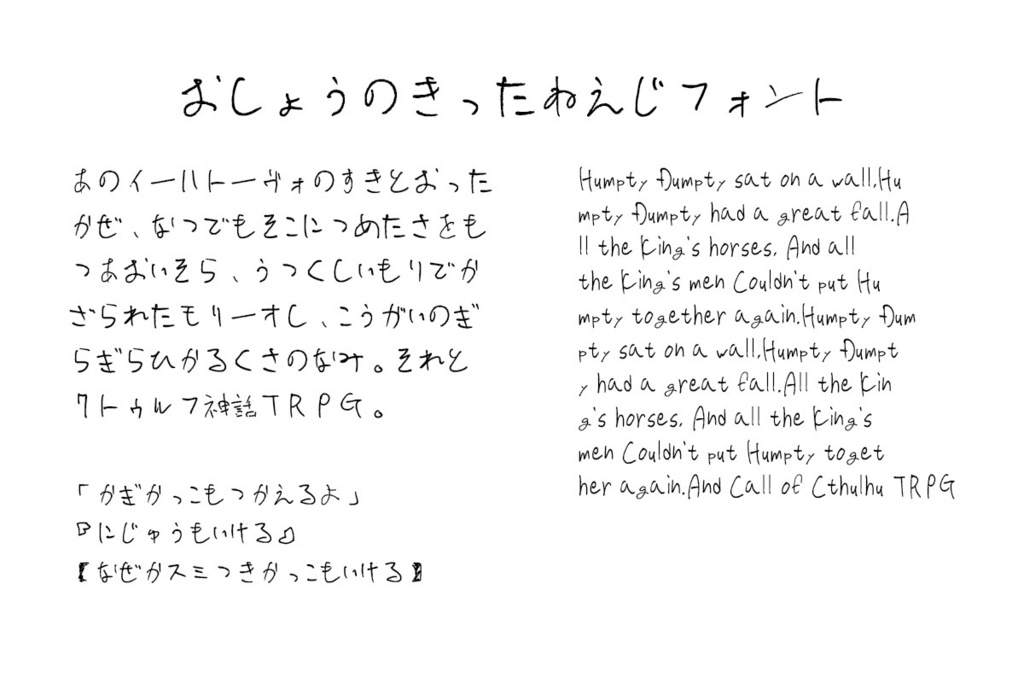 おしょうのきったねえじフォント
あのイーハトーヴォのすきとおった
かぜ、なつでもそこにつめたさをも
つあおいそら、うつくしいもりでか
ざられたモリーオし、こうがいのぎ
らぎらひかるくさのなみ。それと
クトゥルフ神話TRPG。
「かぎかっこもつかえるよ」
『にじゅうもいける』
【なぜかスミつきかっこもいける】
Humpty Dumpty sat on a wall.Hu
mpty Dumpty had a great fall.A
ll the King's horses, And all
the King's men Couldn't put Hu
mpty together again.Humpty Dum
pty sat on a wall.Humpty Dumpt
y had a great fall.All the Kin
g's horses, And all the King's
men Couldn't put Humpty toget
her again.And Call of Cthulhu TRPG